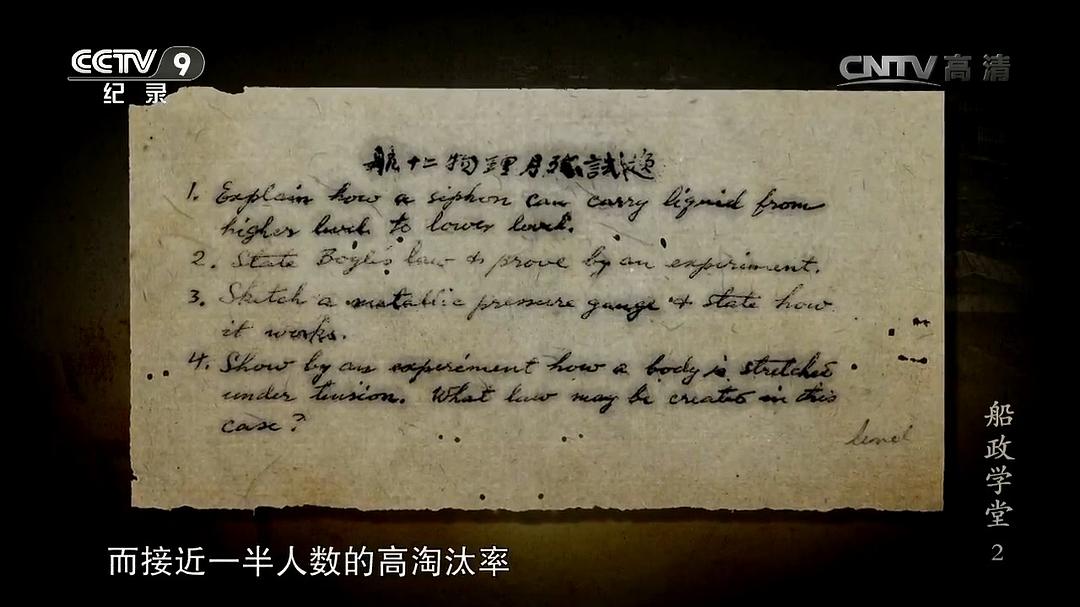 CCTV 9
纪录
CNTV高清
航十二物理月考試題
1. Explain how a siphon can carry liquid from
higher level to lower level.
2. State Boyle's law & prove by an experiment.
3. Sketch a metallic pressure gauge & state how
it works.
4. Show by an experiment how a body is stretched
under tension. What law may be created in this
case?
level
船政学堂 2
而接近一半人数的高淘汰率